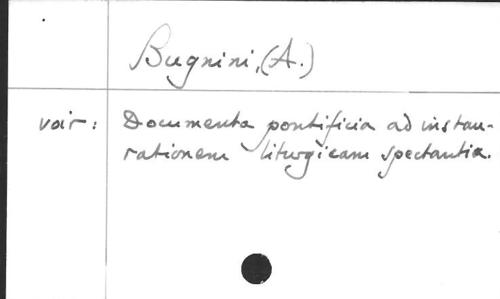 Bugnini, (A.)
voir: Documenta pontificia ad instau-
rationem liturgicam spectantia.